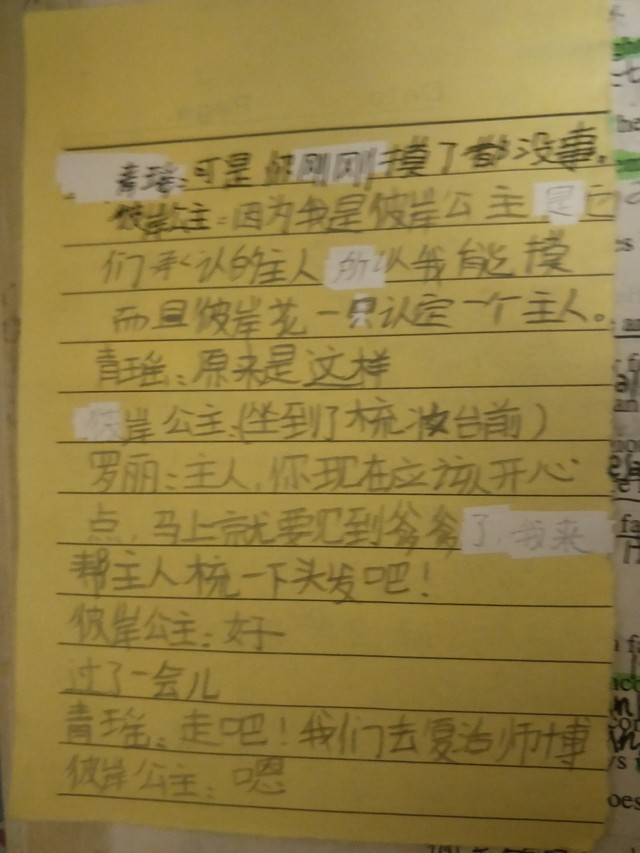 青瑶：可是你刚刚摸了都没事。
彼岸公主：因为我是彼岸公主是它
们承认的主人所以我能摸
而且彼岸花一只认定一个主人。
青瑶：原来是这样
彼岸公主：(坐到了梳妆台前)
罗丽：主人，你现在应该开心
点，马上就要见到爹爹了，我来
帮主人梳一下头发吧！
彼岸公主：好
过了一会儿
青瑶：走吧！我们去复活师博
彼岸公主：嗯